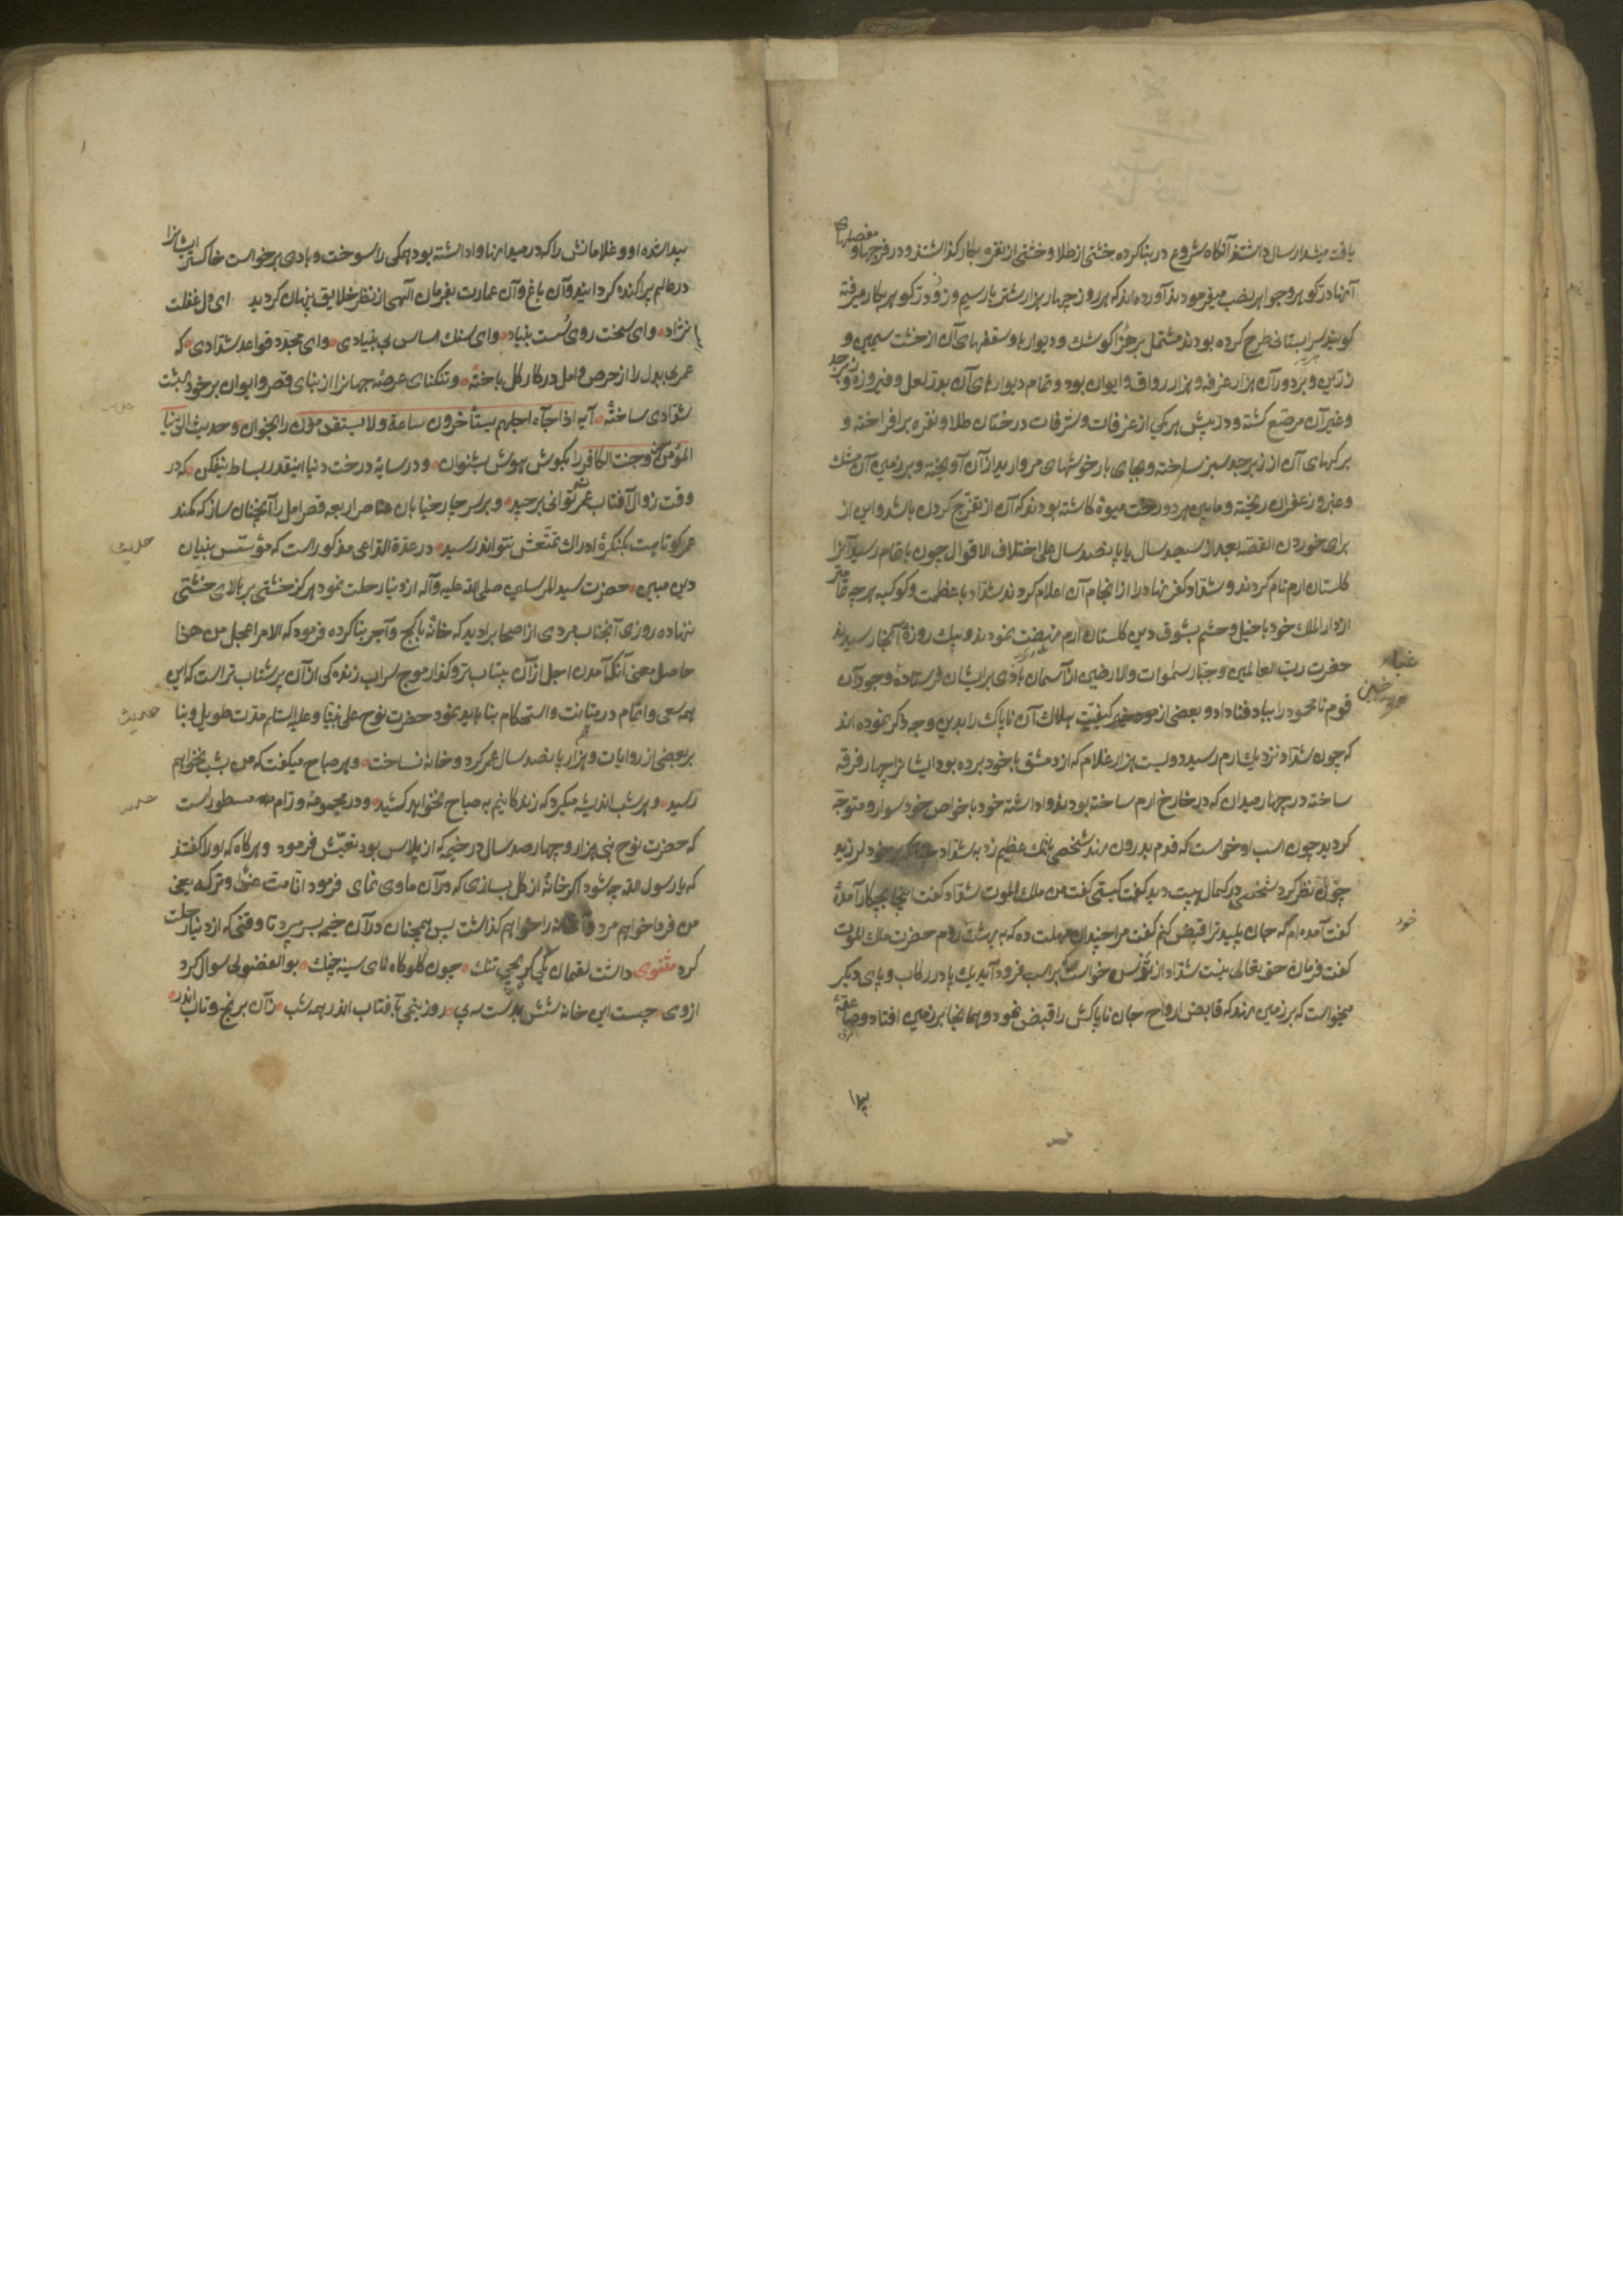 یافت میشد ارسال داشتند آنگاه شروع در بنا کرده خشتی از طلا و خشتی از نقره بکار گذاشتند و در فرجها و مفصلهای
آنها در و کوهر و جواهر نصب میفرمودند آورده اند که هر روز چهار هزار شتر بار سیم و زر و در و کوهر بکار میرفته
کویند سرابستانی طرح کرده بودند مشتمل بر هزار کوشک و دیوارها و سقفهای آن از خشت سیمین و
زرین و بر دور آن هزار غرفه و هزار رواق و ایوان بود و تمام دیوارهای آن بدر و لعل و فیروزه و زبرجد
و غیر آن مرصع کشته و در پیش هر یکی از غرفات و شرفات درختان طلا و نقره برافراخته و
برکهای آن از زبرجد سبز ساخته و بجای بار خوشهای مروارید از آن آویخته و بر زمین آن مشک
و عنبر و زعفران ریخته و مابین هر دو درخت میوۀ کاشته بودند که آن از تفرج کردن باشد و این از
برای خوردن القصه بعد از سیصد سال یا پانصد سال علی اختلاف الاقوال چون باتمام رسید آنرا
کلستان ارم نام کردند و شداد کفر نهاد را از انجام آن اعلام کردند شداد با عظمت و کوکبه هر چه تمامتر
از دار الملک خود با خیل و حشم بشوق دین کلستان ارم نهضت نمودند و بیک روزۀ آنجا رسیدند
حضرت رب العالمین و جبار سموات و الارضین از آسمان بادی بر ایشان فرستاده غبار وجود آن
قوم نامحمود را بباد فنا داد و بعضی از مورخین کیفیت هلاک آن ناپاک را بدین وجه ذکر نموده اند
که چون شداد نزدیک ارم رسید دویست هزار غلام که از دمشق با خود برده بود ایشانرا چهار فرقه
ساخته در چهار میدان که در خارج ارم ساخته بودند واداشته خود با خواص خود سوار و متوجه
کردید چون اسب او خواست که قدم بدرون نهد شخصی بانک عظیم زد بشداد خود لرزید
چون نظر کرد شخصی در کمال هیبت دید کفت کیستی کفت من ملک الموت شداد کفت اینجا بچکار آمدۀ
کفت آمده ام که جان پلید ترا قبض کنم کفت مرا چندان مهلت ده که به بهشت روم حضرت ملک الموت
کفت فرمان حق تعالی نیست شداد از ترس خواست که از اسب فرود آید یک پا در رکاب و پای دیکر
میخواست که بر زمین نهد که قابض ارواح جان ناپاکش را قبض نمود و همانجا بر زمین افتاد و صاعقۀ
غبار
مورخین
خود
پیدا
پیدا شده او و غلامانش را که در میدانها واداشته بود همکی را سوخت و بادی برخواست خاکستر ایشانرا
در عالم پراکنده کردانید و آن باغ و آن عمارت بفرمان الهی از نظر خلایق پنهان کردید ای دل غفلت
نژاد وای سخت روی سست بنیاد وای سنک اساس بی بنیادی وای مجدد قواعد شدادی که
عمری بیدل را از حرص و امل در کار کل باخته و تنکنای عرصۀ جهانرا از بنای قصر و ایوان بر خود بهشت
شدادی ساخته آیه اذا جآء اجلهم لا یستأخرون ساعة ولا یستقدمون را بخوان و حدیث الدنیا
سجن المؤمن و جنت الکافر را بکوش هوش بشنوان و در سایۀ درخت دنیا اینقدر بساط بیفکن که در
وقت زوال آفتاب عمر توانی برچید و بر سر چار خیابان عناصر اربعه قصر امل را آنچنان ساز که کمند
عمر کوتاهت بکنکرۀ ادراک تمتعش نتواند رسید در عدة الداعی مذکور است که مؤسس بنیان
دین مبین حضرت سید المرسلین صلی الله علیه وآله از دنیا رحلت نمود هرکز خشتی بر بالای خشتی
ننهاده روزی آنجناب مردی از اصحاب را دید که خانۀ با کچ و آجر بنا کرده فرمود که الامر اعجل من هذا
حاصل معنی آنکه آمدن اجل از آن پرشتاب تر و کذار موج سراب زندکی از آن پرشتاب تر است که این
همه سعی و اهتمام در متانت و استحکام بنا باید نمود حضرت نوح علی نبینا و علیه السلام مدت طویل و بنا
بر بعضی از روایات دو هزار و پانصد سال عمر کرد و خانه نساخت و هر صباح میکفت که من بشب نخواهم
رسید و هر شب اندیشه میکرد که زندکانیم به صباح نخواهد کشید و در مجموعۀ ورام مسطور است
که حضرت نوح نبی هزار و چهارصد سال در خیمه که از پلاس بود تعیش فرمود و هرکاه که باو را کفتند
که یا رسول الله چه شود اکر خانۀ از کل بسازی که در آن ماوی نمای فرمود انا میت غدا و ترکه یعنی
من فردا خواهم مرد و آنخانه را خواهم کذاشت پس همچنان در آن خیمه بسر میبرد تا وقتی که از دنیا رحلت
کرد مثنوی داشت لقمان یکی کریچی تنک چون کلوکاه نای سینه چنک بو الفضولی سوال کرد
از وی چیست این خانه شش بدست سه پی روز نیمی بآفتاب اندر همه شب زآن برنج و تاب اندر
حدیث
حدیث